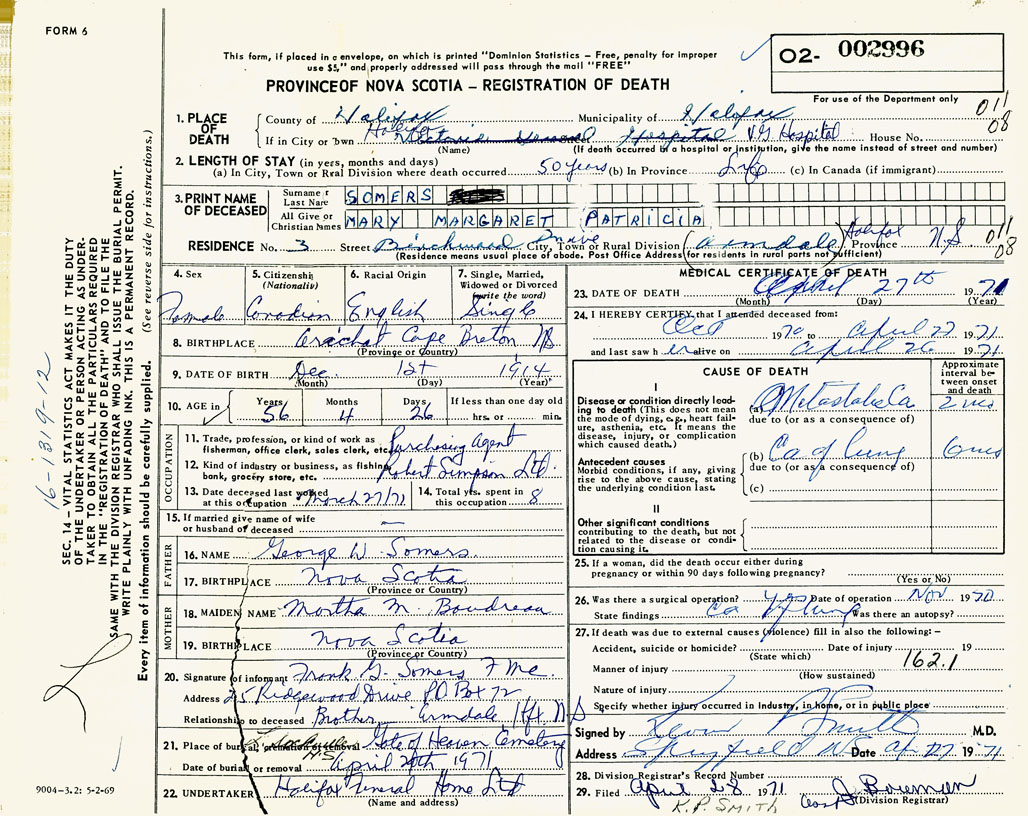 FORM 6
This form, if placed in a envelope, on which is printed "Dominion Statistics – Free, penalty for improper
use $5," and properly addressed will pass through the mail "FREE"
O2- 002996
PROVINCEOF NOVA SCOTIA – REGISTRATION OF DEATH
For use of the Department only
011
08
1. PLACE OF DEATH
County of Halifax Municipality of Halifax
If in City or Town Halifax Victoria General Hospital V.G Hospital House No.
(Name) (If death occurred in a hospital or institution, give the name instead of street and number)
2. LENGTH OF STAY (in yers, months and days)
(a) In City, Town or Rral Division where death occurred 50 years (b) In Province Life (c) In Canada (if immigrant)
3. PRINT NAME OF DECEASED
Surname or Last Name SOMERS
All Give or Christian Names MARY MARGARET PATRICIA
RESIDENCE No. 3 Street Birchwood Drive City, Town or Rural Division Armdale Halifax Province N.S 011
08
(Residence means usual place of abode. Post Office Address for residents in rural parts not sufficient)
4. Sex
Female
5. Citizenship
(Nationality)
Canadian
6. Racial Origin
English
7. Single, Married,
Widowed or Divorced
(write the word)
Single
8. BIRTHPLACE Arichat Cape Breton NS
(Province or Country)
9. DATE OF BIRTH Dec. 1st 1914
(Month) (Day) (Year)
10. AGE in Years 56 Months 4 Days 26 If less than one day old
hrs. or min.
OCCUPATION
11. Trade, profession, or kind of work as
fisherman, office clerk, sales clerk, etc. Purchasing Agent
12. Kind of industry or business, as fishing,
bank, grocery store, etc. Robert Simpson Ltd.
13. Date deceased last worked
at this occupation March 27/71
14. Total yrs. spent in
this occupation 8
15. If married give name of wife
or husband of deceased —
FATHER
16. NAME George W. Somers
17. BIRTHPLACE Nova Scotia
(Province or Country)
MOTHER
18. MAIDEN NAME Martha M. Boudreau
19. BIRTHPLACE Nova Scotia
(Province or Country)
20. Signature of informant Frank G. Somers
Address 25 Ridgewood Drive P.O. Box 72
Relationship to deceased Brother Armdale Hfx NS
21. Place of burial, cremation or removal Sackville N.S. Gate of Heaven Cemetery
Date of burial or removal April 1971
22. UNDERTAKER Halifax Funeral Home Ltd
(Name and address)
MEDICAL CERTIFICATE OF DEATH
23. DATE OF DEATH April 27th 1971
(Month) (Day) (Year)
24. I HEREBY CERTIFY that I attended deceased from:
Oct 1970 to April 27 1971
and last saw h er alive on April 26 1971
CAUSE OF DEATH
Approximate
interval be-
tween onset
and death
I
Disease or condition directly lead-
ing to death (This does not mean
the mode of dying, e.g., heart fail-
ure, asthenia, etc. It means the
disease, injury, or complication
which caused death.)
(a) Metastatic Ca 2 mos
due to (or as a consequence of)
Antecedent causes
Morbid conditions, if any, giving
rise to the above cause, stating
the underlying condition last.
(b) Ca of lung 6 mos
due to (or as a consequence of)
(c)
II
Other significant conditions
contributing to the death, but not
related to the disease or condi-
tion causing it.
25. If a woman, did the death occur either during
pregnancy or within 90 days following pregnancy?
(Yes or No)
26. Was there a surgical operation? yes Date of operation Nov 1970
State findings Ca of lung Was there an autopsy?
27. If death was due to external causes (violence) fill in also the following: –
Accident, suicide or homicide? Date of injury 19
(State which)
162.1
Manner of injury
(How sustained)
Nature of injury
Specify whether injury occurred in Industry, in home, or in public place
Signed by Kevin P Smith M.D.
Address Spryfield Date Ap 27 1971
28. Division Registrar's Record Number
29. Filed April 28 1971 J. Bowman
K. P. SMITH (Division Registrar)
16-1319-12
SEC. 14 – VITAL STATISTICS ACT MAKES IT THE DUTY
OF THE UNDERTAKER OR PERSON ACTING AS UNDER-
TAKER TO OBTAIN ALL THE PARTICULARS REQUIRED
IN THE "REGISTRATION OF DEATH" AND TO FILE THE
SAME WITH THE DIVISION REGISTRAR WHO SHALL ISSUE THE BURIAL PERMIT.
WRITE PLAINLY WITH UNFADING INK. THIS IS A PERMANENT RECORD.
Every item of information should be carefully supplied. (See reverse side for instructions.)
9004-3.2: 5-2-69